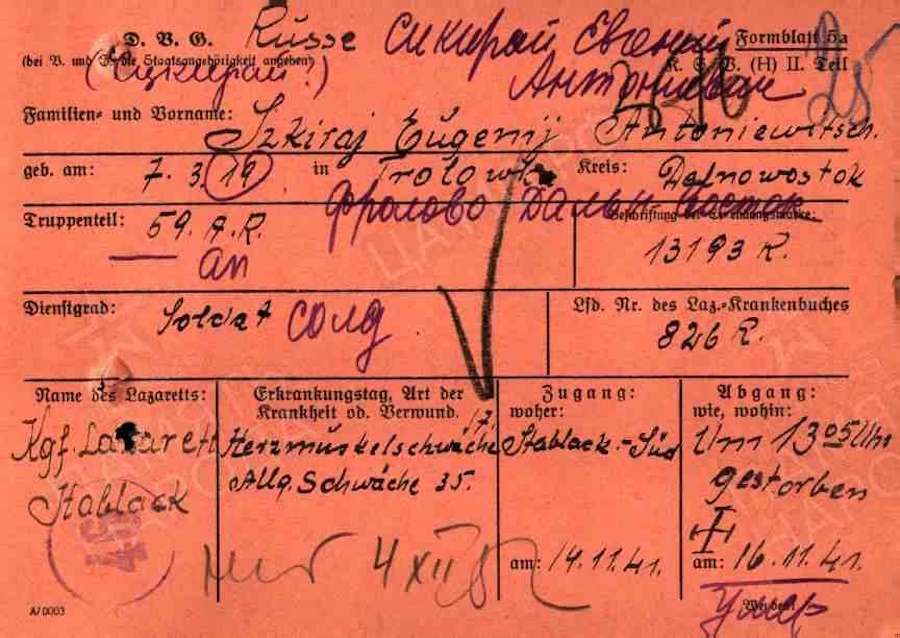 D. V. G. Russe Сикирай Евгений Formblatt 5a
(bei B. und die Staatsangehörigkeit angeben) K. G. V. (H) II. Teil
(Сцикирай?) Антониевич 25
Familien- und Vorname: Szkiraj Eugenij Antoniewitsch.
geb. am: 7. 3. 19 in Frolowka Kreis: Dalnowostok
Фролово Дальн. Восток
Truppenteil: 59. A.R.
ап
13193 R.
Dienstgrad: Soldat солд
Lfd. Nr. des Laz.-Krankenbuches
826 R.
Name des Lazaretts:
Kgf. Lazarett
Stablack
Erkrankungstag, Art der
Krankheit od. Verwund.
Herzmuskelschwäche
Allg. Schwäche 35.
Zugang:
woher:
Stablack-Süd
am: 14.11.41.
Abgang:
wie, wohin:
Um 13 05 Uhr
gestorben
am: 16.11.41.
4 XII
умер
A/0003